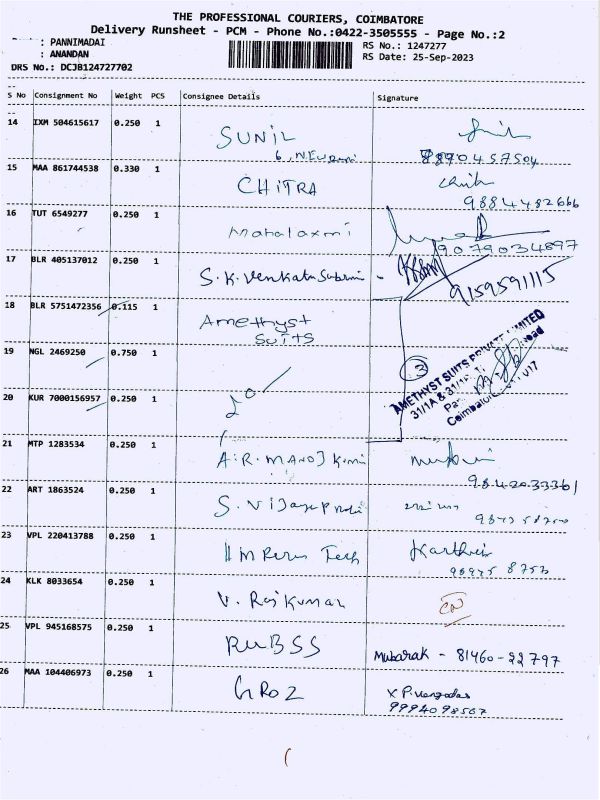 THE PROFESSIONAL COURIERS, COIMBATORE
Delivery Runsheet - PCM - Phone No.:0422-3505555 - Page No.:2
: PANNIMADAI
RS No.: 1247277
: ANANDAN
RS Date: 25-Sep-2023
DRS No.: DCJB124727702
S No Consignment No Weight PCS Consignee Details Signature
14 IXM 504615617 0.250 1 SUNIL
8890457504
15 MAA 861744538 0.330 1 CHITRA
9884482666
16 TUT 6549277 0.250 1 Mahalaxmi
9079034897
17 BLR 405137012 0.250 1 S.K. Venkata
9159591115
18 BLR 5751472356 0.115 1 Amethyst
SUITS
19 NGL 2469250 0.750 1
3
AMETHYST SUITS PRIVATE LIMITED
31/1A & 31/1
Coimbatore
20 KUR 7000156957 0.250 1
21 MTP 1283534 0.250 1 A.R. MANOJ
22 ART 1863524 0.250 1 S. Vijaya
23 VPL 220413788 0.250 1 Tech
24 KLK 8033654 0.250 1 V. Rajkumar
25 VPL 945168575 0.250 1 RUBSS
Mubarak - 81460-22797
26 MAA 104406973 0.250 1 GROZ
9994098567